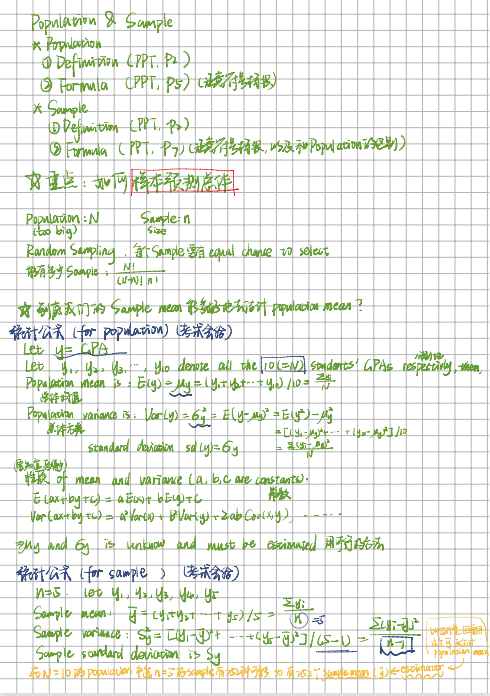 Population & Sample
* Population
① Definition (PPT, P2)
② Formula (PPT, P5) (注意符号)
* Sample
① Definition (PPT, P3)
② Formula (PPT, P7) (注意符号, 以及和Population的区别)
☆ 重点: 如何样本预测总体
Population: N Sample: n
(too big) size
Random Sampling, 每个Sample要有equal chance to select
能有多少Sample: N!/((N-n)! n!)
☆ 到底我们的Sample mean 能多好地去估计 population mean?
统计公式 (for population) (考试会给)
Let y = GPA
Let y₁, y₂, y₃, ... y₁₀ denote all the 10 (=N) students' GPAs respectivly, then,
Population mean is: E(y) = μy = (y₁+y₂+...+y₁₀)/10 = Σyi/N
总体均值
Population variance is: Var(y) = σy² = E(y-μy)² = E(y²)-μy²
总体方差 = [(y₁-μy)²+...+(y₁₀-μy)²]/10
standard deviation sd(y) = σy = Σ(yi-μy)²/N
性质 of mean and variance (a, b, c are constants).
常数
E(ax+by+c) = aE(x)+bE(y)+c
Var(ax+by+c) = a²Var(x)+b²Var(y)+2ab Cov(x,y)
⇒ μy and σy is unknow and must be estimated
统计公式 (for sample) (考试会给)
n=5. Let y₁, y₂, y₃, y₄, y₅
Sample mean: ȳ = (y₁+y₂+...+y₅)/5 = Σyi/n =5
Sample variance: Sy² = [(y₁-ȳ)²+...+(y₅-ȳ)²]/(5-1) = Σ(yi-ȳ)²/(n-1)
Sample standard deviation is Sy
population mean
在N=10的population中选n=5的sample有252种可能 ∴有252个sample mean (ȳ) ← estimator